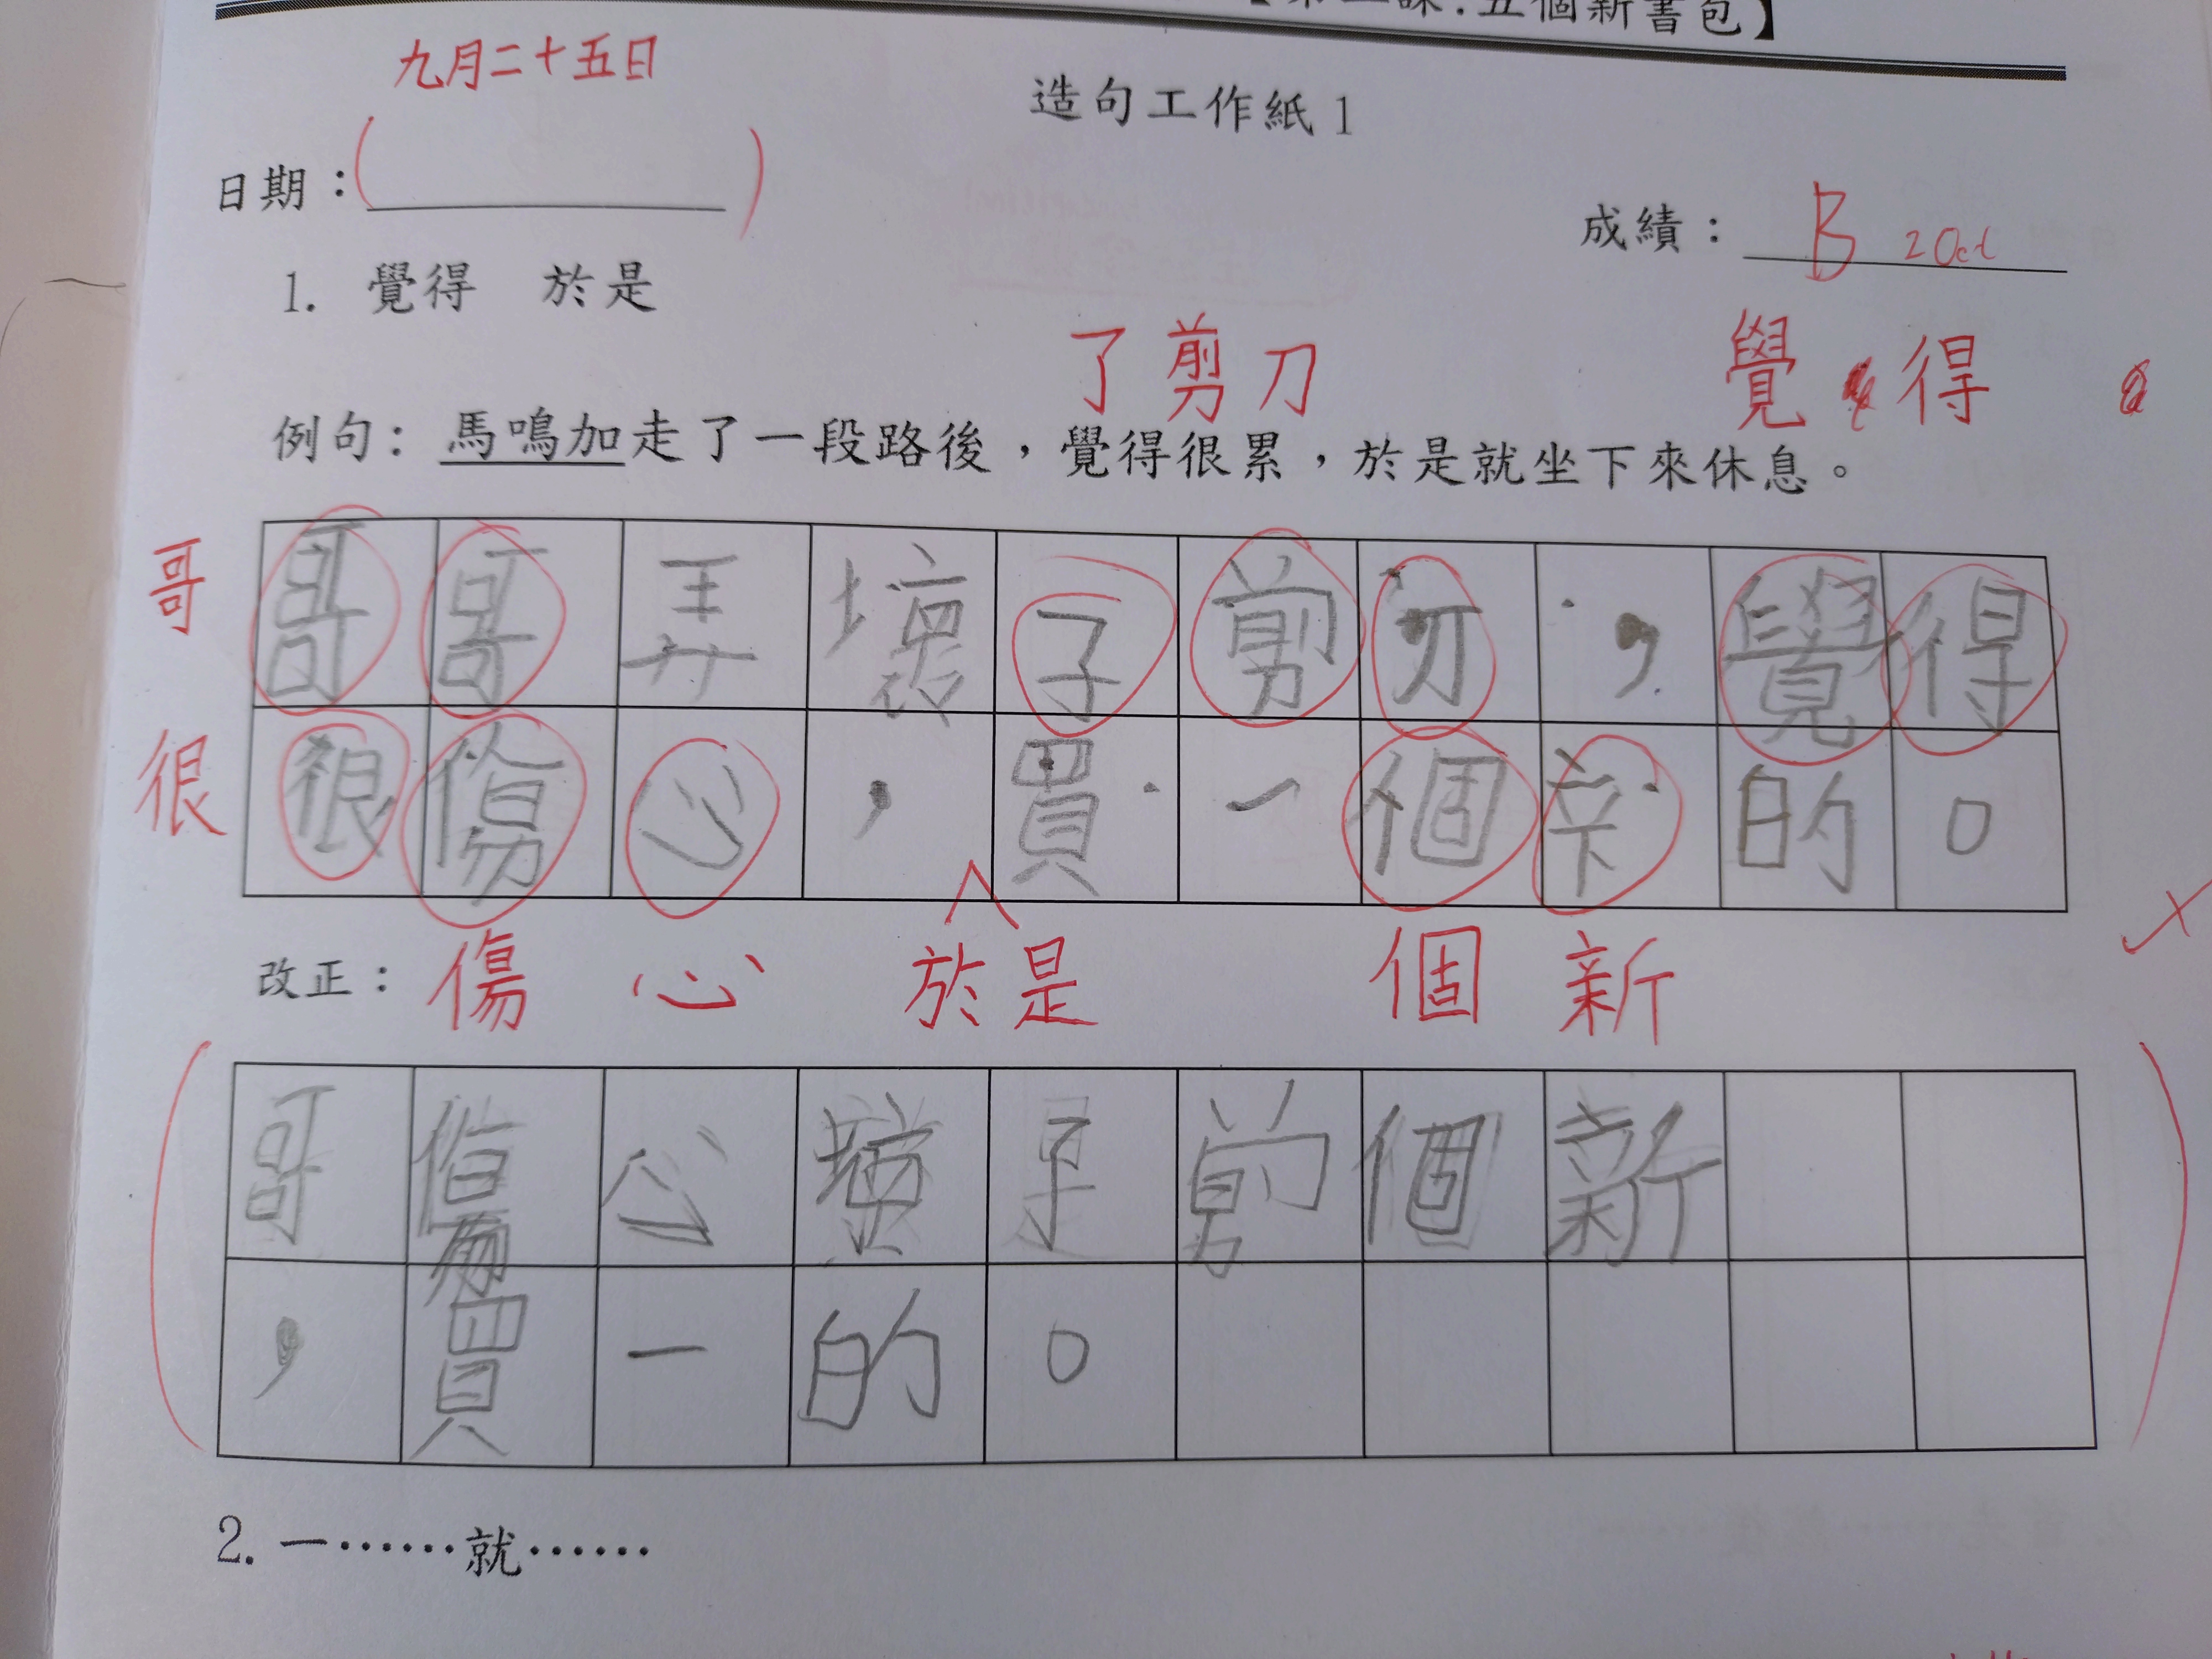 五個新書包】
九月二十五日
造句工作紙1
日期：(　　)
成績：B 2 Oct
1. 覺得　於是
了剪刀　覺得
例句：馬鳴加走了一段路後，覺得很累，於是就坐下來休息。
哥 哥哥弄壞子剪刀，覺得
很 很傷心，買一個新的。
改正：傷心　於是　個新
哥傷心壞子剪個新
，買一的。
2. 一……就……